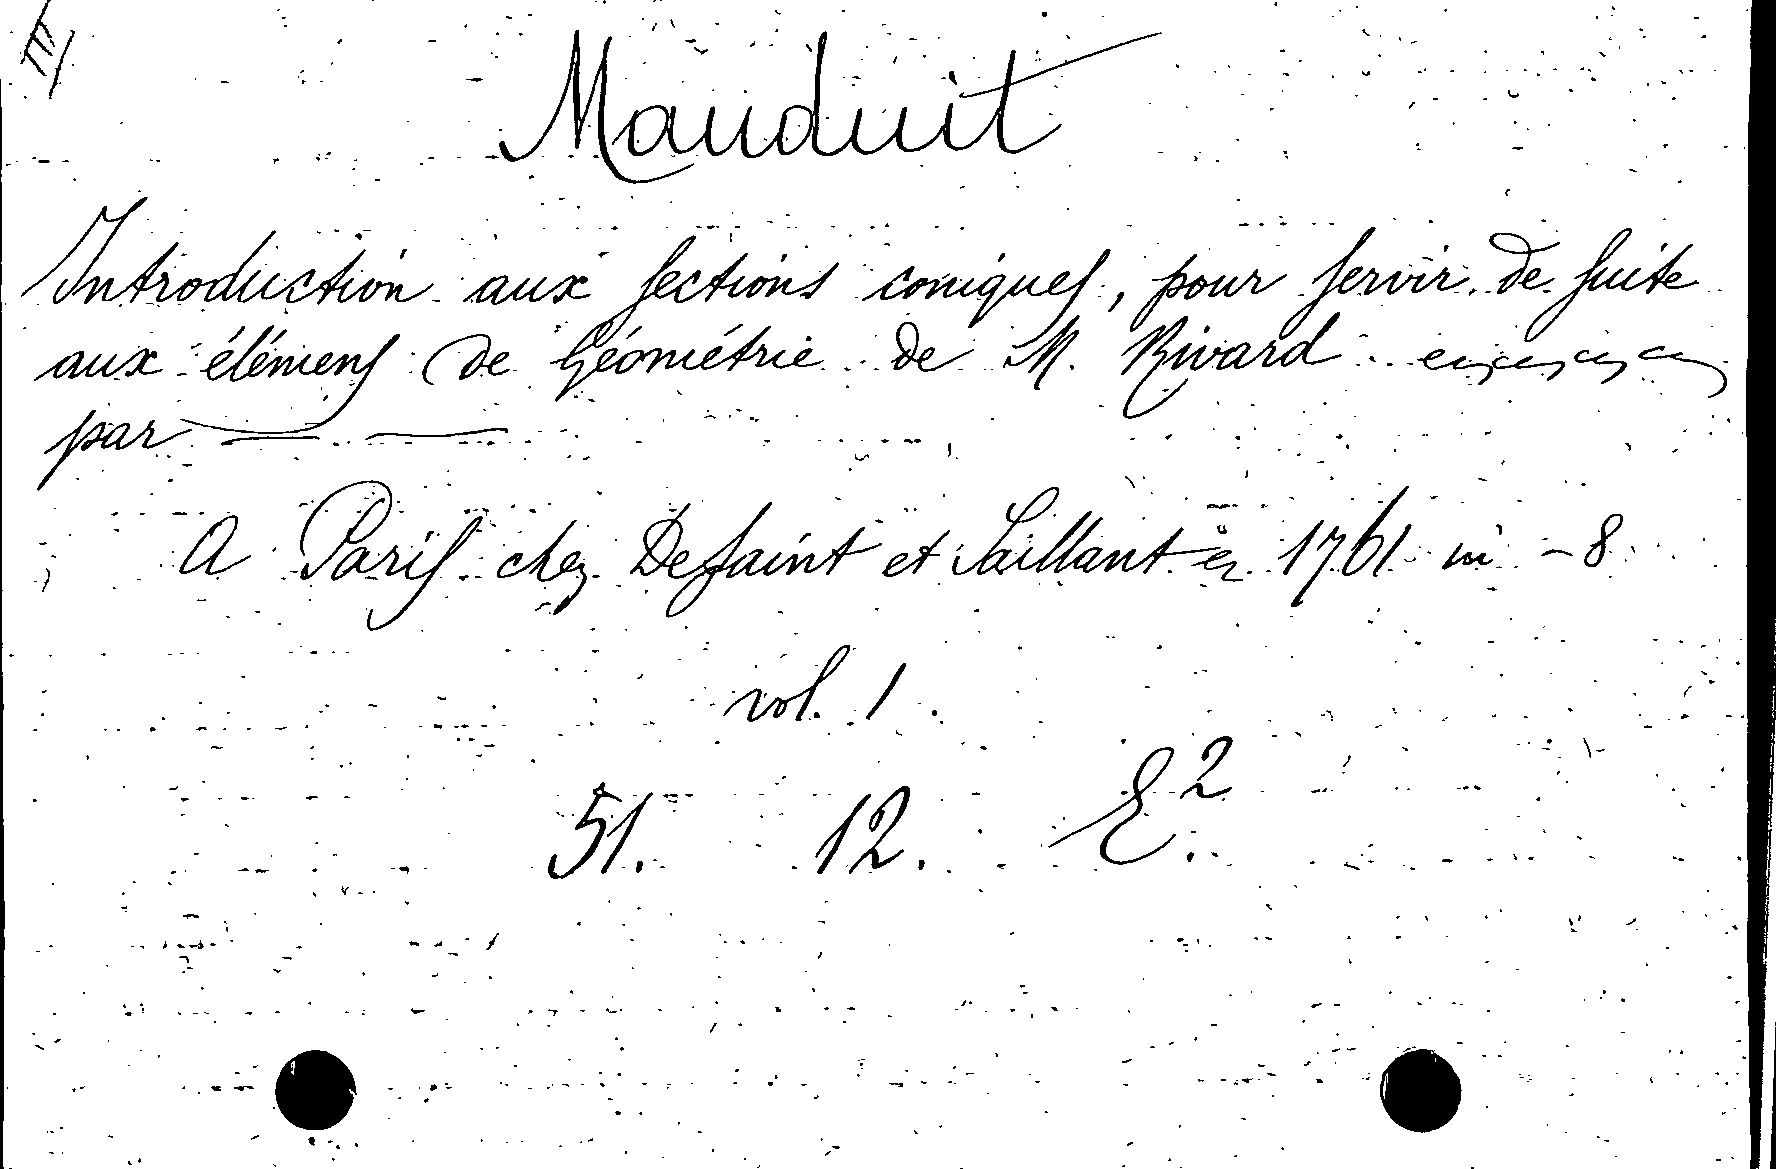 Mauduit
Introduction aux sections coniques, pour servir de suite
aux élémens de Géométrie de M. Rivard
par
A Paris chez Desaint et Saillant 1761 in -8
vol. 1.
51. 12. E².